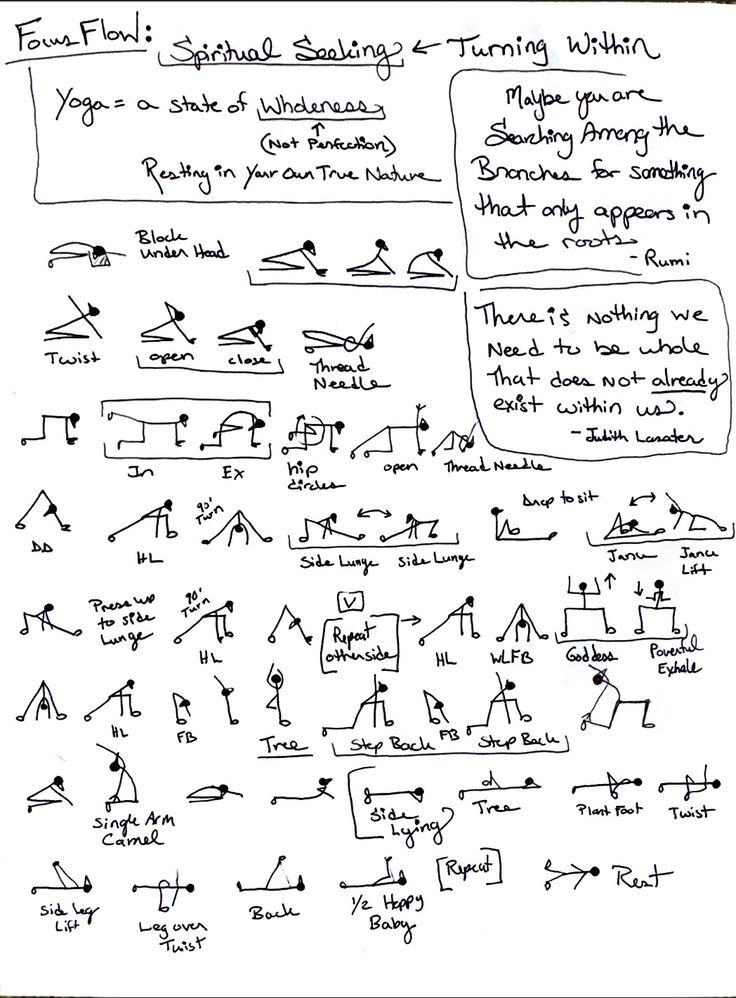 Focus Flow: Spiritual Seeking ← Turning Within
Yoga = a state of Wholeness
↑
(Not Perfection)
Resting in Your Own True Nature
Maybe you are
Searching Among the
Branches for something
that only appears in
the roots
- Rumi
Block
under Head
There is nothing we
Need to be whole
That does not already
exist within us.
- Judith Lasater
Twist
open
close
Thread
Needle
In
Ex
hip
circles
open
Thread Needle
DD
HL
90°
Turn
Side Lunge
Side Lunge
Drop to sit
Janu
Janu
Lift
Press up
to side
Lunge
90°
Turn
HL
V
[Repeat
otherside]
→
HL
WLFB
Goddess
Powerful
Exhale
HL
FB
Tree
Step Back
FB
Step Back
Single Arm
Camel
Side
Lying
Tree
Plant Foot
Twist
Side leg
Lift
Leg over
Twist
Back
1/2 Happy
Baby
[Repeat]
Rest